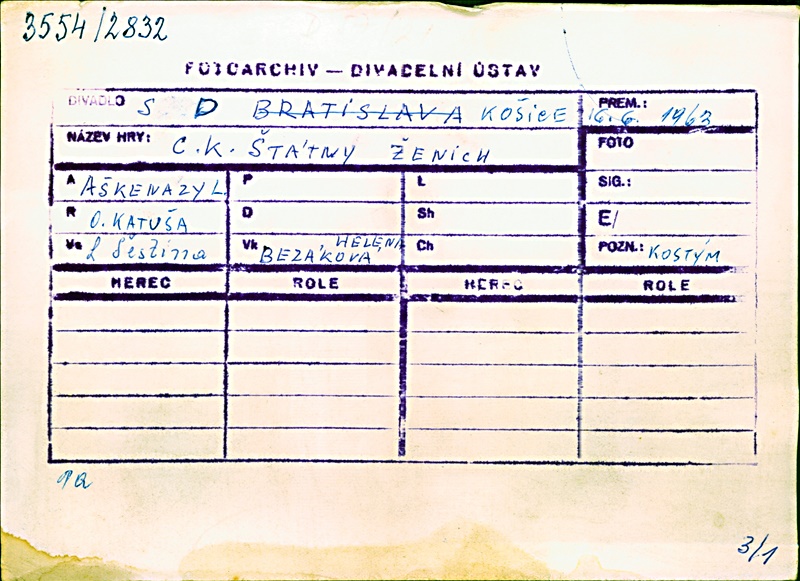 3554/2832
FOTOARCHIV — DIVADELNÍ ÚSTAV
DIVADLO S D BRATISLAVA KOŠICE PREM.: 16. 6. 1963
NÁZEV HRY: C.K. ŠTÁTNY ŽENICH FOTO
A AŠKENAZY L. P L SIG.:
R O. KATUŠA D Sh E/
Vs L Šestina Vk HELENA BEZÁKOVÁ Ch POZN.: KOSTÝM
HEREC ROLE HEREC ROLE
3/1